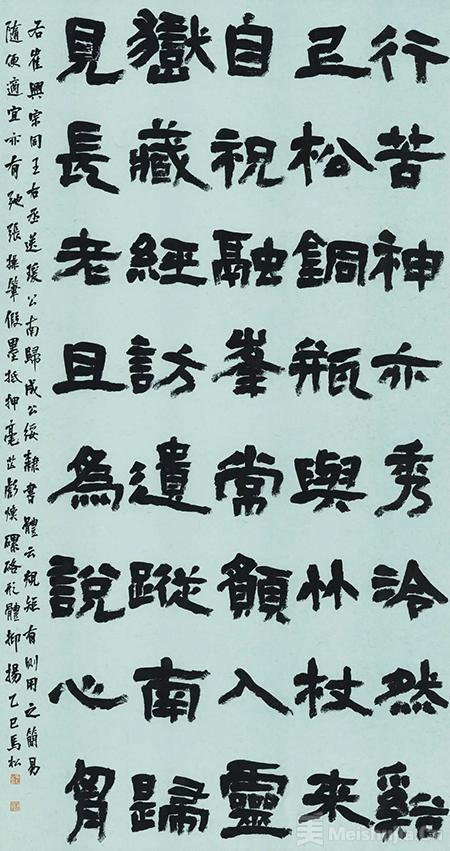 行苦神亦秀泠然谿
上松銅瓶與竹杖來
自祝融峯常願入靈
嶽藏經訪遺蹤南歸
見長老且為說心胷
右崔興宗同王右丞送瑗公南歸成公綏隸書體云規矩有則用之簡易
隨便適宜亦有弛張操筆假墨抵押毫芒彪煥磥硌形體抑揚乙巳馬松
美 Meishujia.Cn